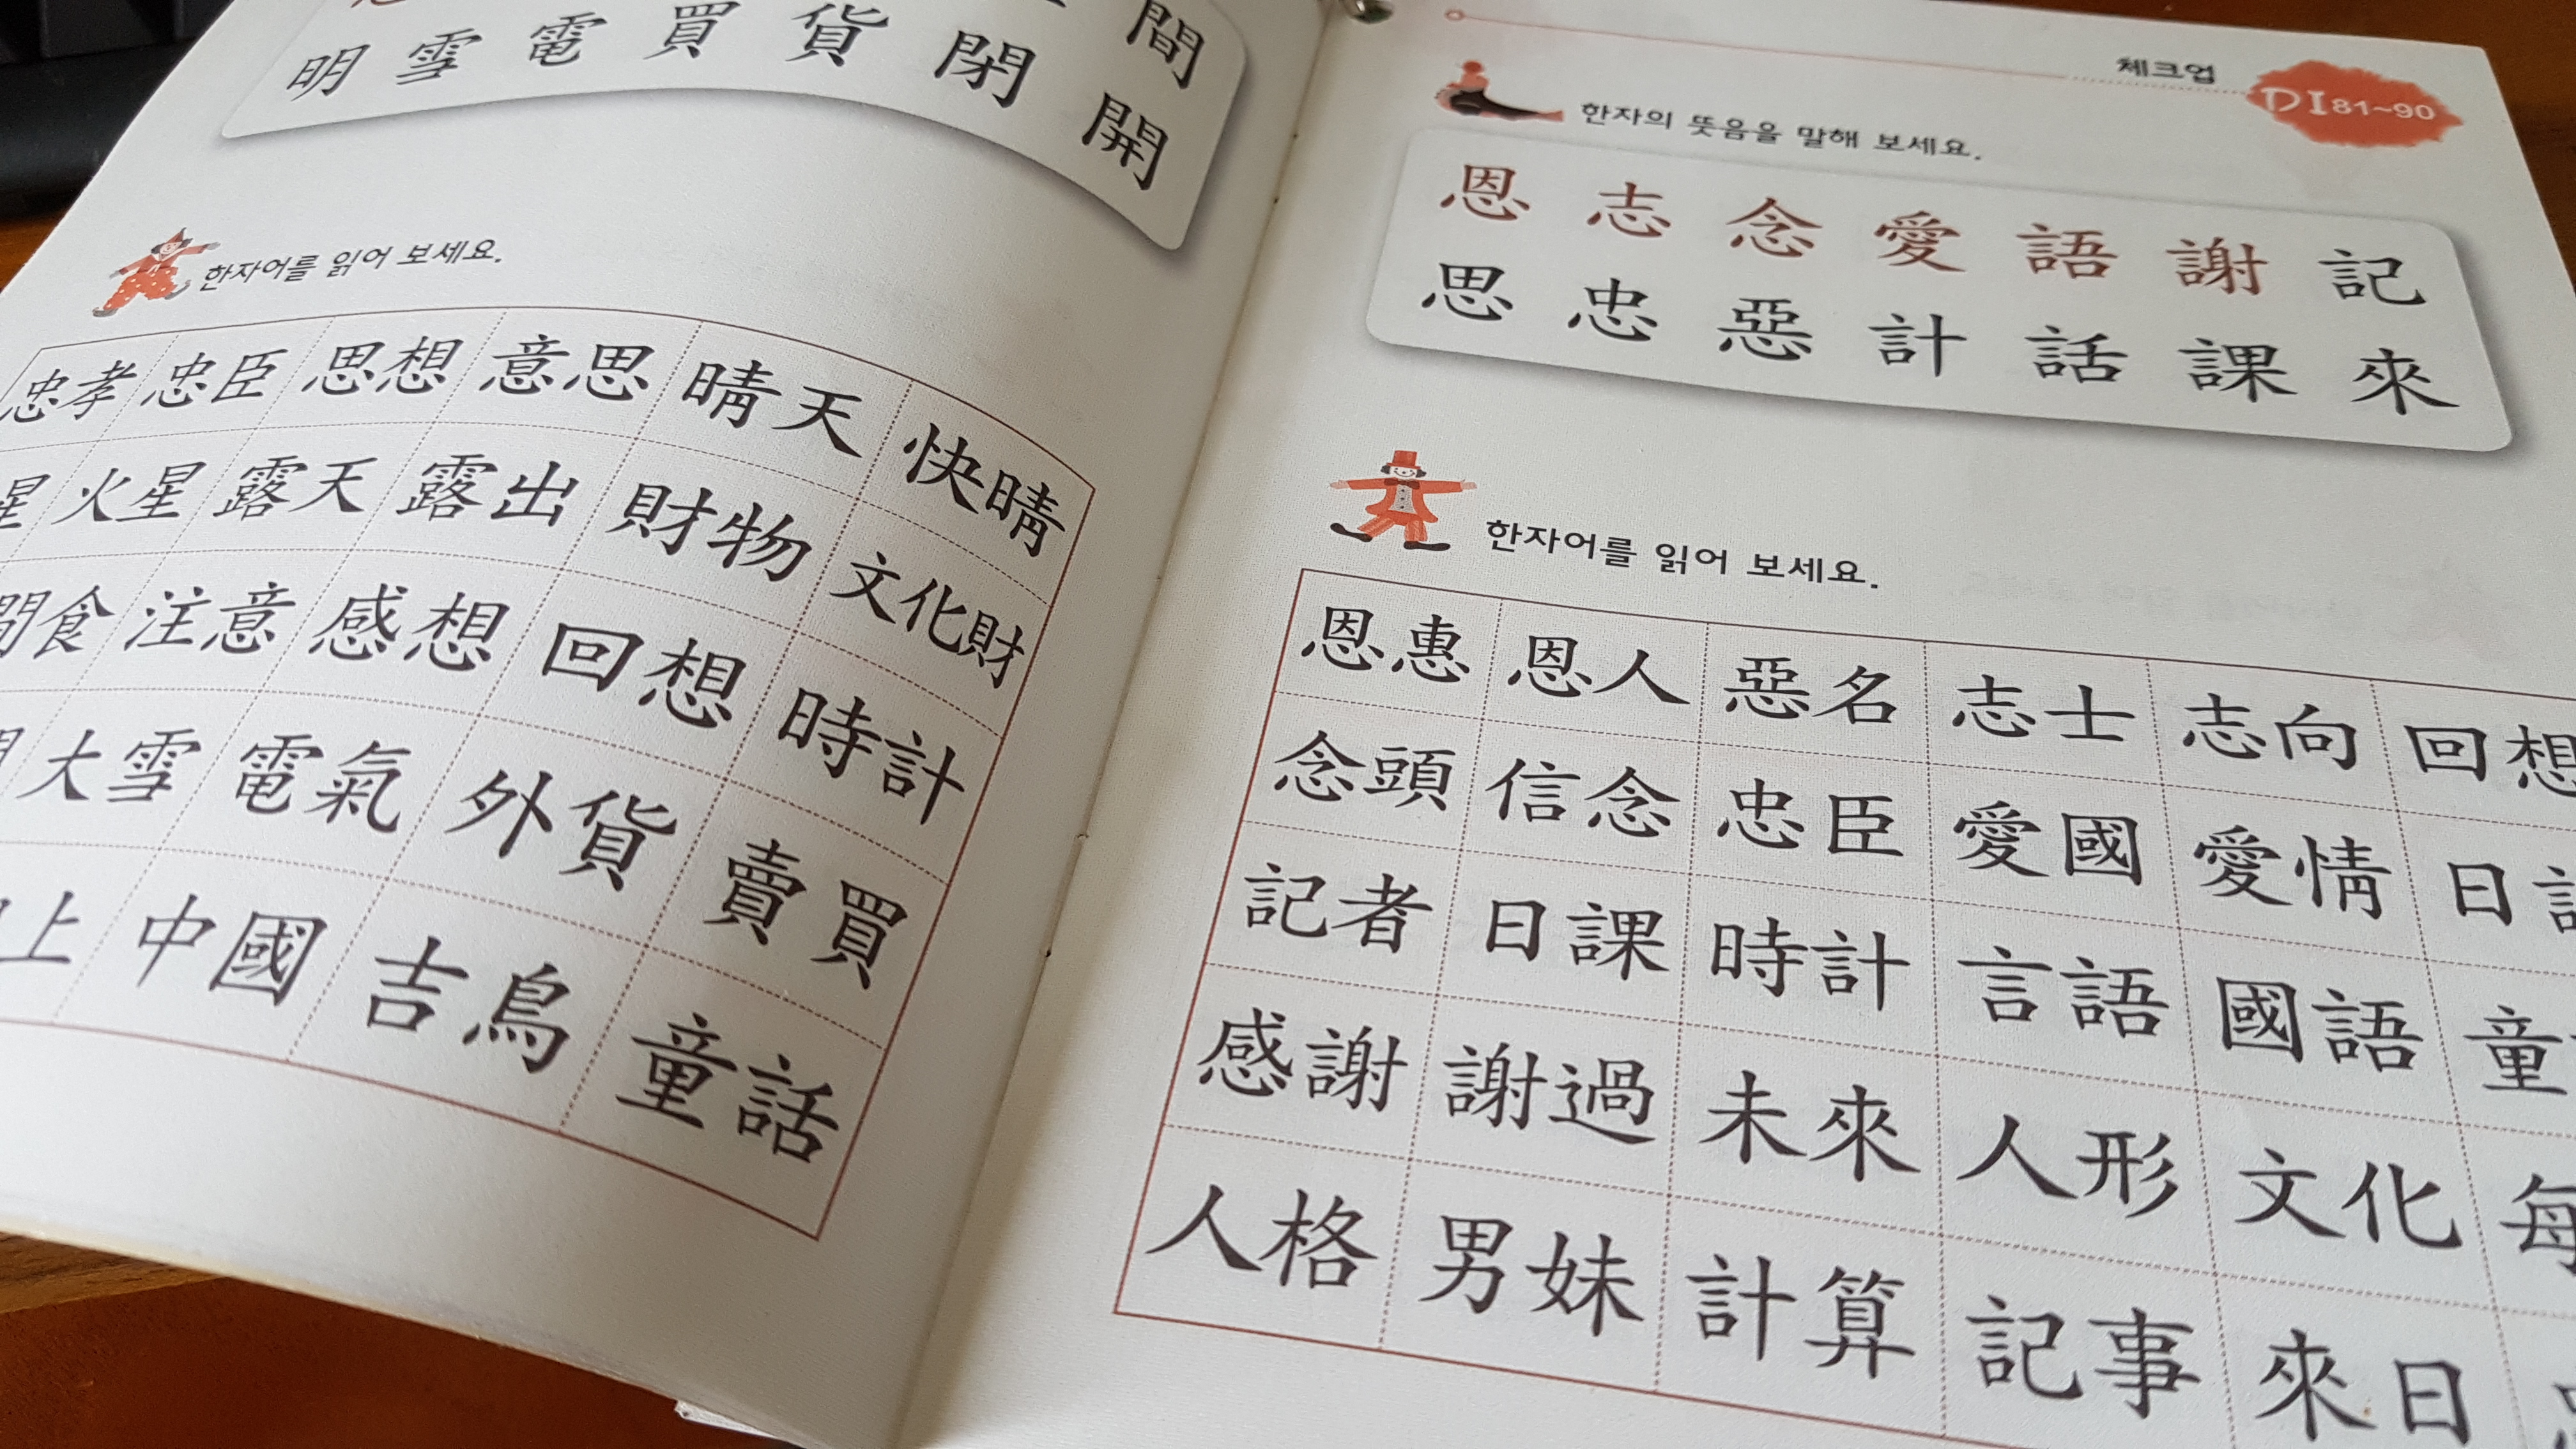 間
明 雪 電 買 貨 閉 開
한자어를 읽어 보세요.
忠孝 忠臣 思想 意思 晴天 快晴
星 火星 露天 露出 財物 文化財
間食 注意 感想 回想 時計
大雪 電氣 外貨 賣買
上 中國 吉鳥 童話
체크업
DI81~90
한자의 뜻음을 말해 보세요.
恩 志 念 愛 語 謝 記
思 忠 惡 計 話 課 來
한자어를 읽어 보세요.
恩惠 恩人 惡名 志士 志向 回想
念頭 信念 忠臣 愛國 愛情 日
記者 日課 時計 言語 國語 童
感謝 謝過 未來 人形 文化 每
人格 男妹 計算 記事 來日